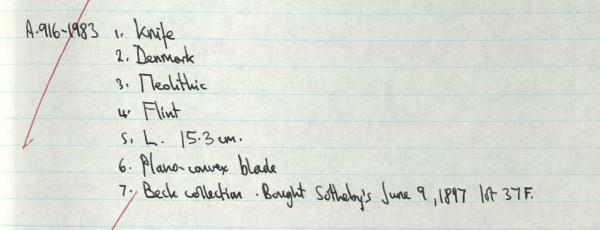 A.916-1983 1. Knife
2. Denmark
3. Neolithic
4. Flint
5. L. 15.3 cm.
6. Plano-convex blade
7. Beck collection. Bought Sotheby's June 9, 1897 lot 37F.